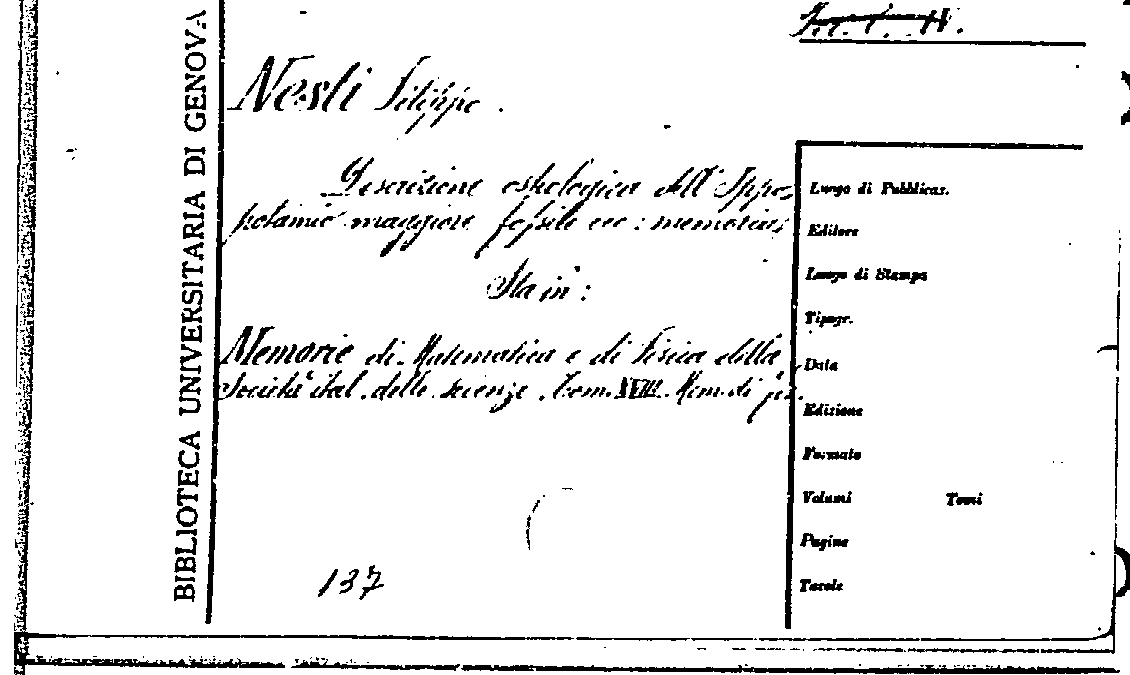 BIBLIOTECA UNIVERSITARIA DI GENOVA
Nesti Filippo.
Descrizione osteologica dell' Ippo-
potamo maggiore fossile ecc: memoria,
Sta in:
Memorie di Matematica e di Fisica della
Società ital. delle scienze. Tom. XVIII. Mem. di
137
Luogo di Pubblicaz.
Editore
Luogo di Stampa
Tipogr.
Data
Edizione
Formato
Volumi Tomi
Pagine
Tavole